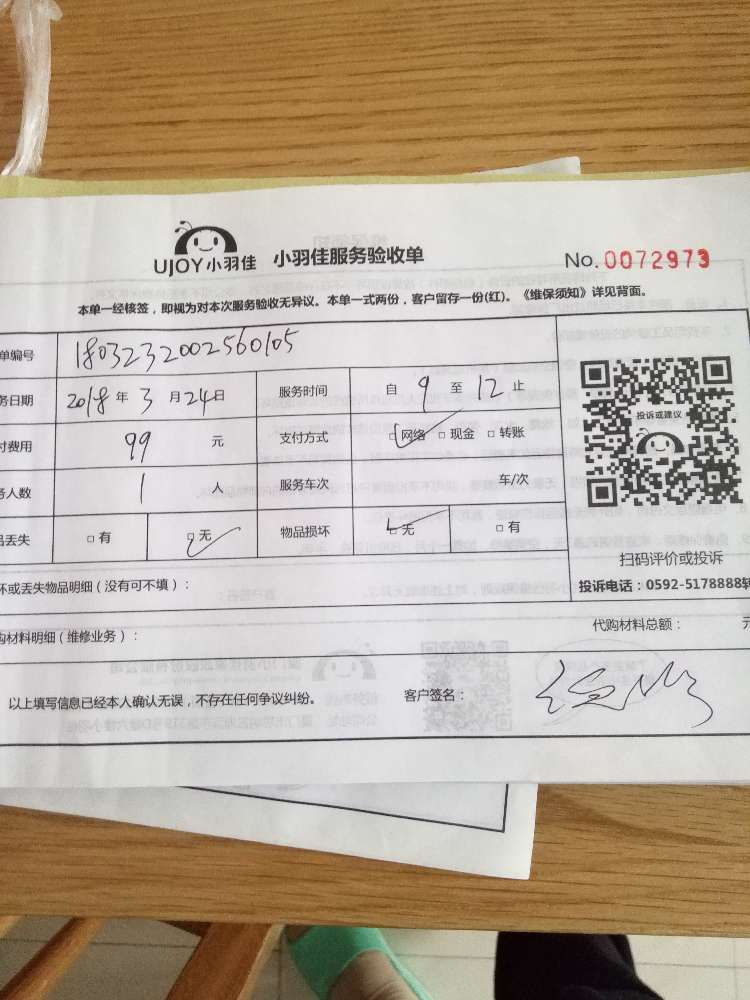 UJOY小羽佳 小羽佳服务验收单 No.0072973
本单一经核签，即视为对本次服务验收无异议。本单一式两份，客户留存一份(红)。《维保须知》详见背面。
单编号 1803232002560105
务日期 2018年3月24日 服务时间 自9至12止
付费用 99元 支付方式 网络 现金 转账
务人数 1人 服务车次 车/次
品丢失 有 无 物品损坏 无 有
投诉或建议
扫码评价或投诉
投诉电话：0592-5178888转
坏或丢失物品明细（没有可不填）：
购材料明细（维修业务）： 代购材料总额： 元
以上填写信息已经本人确认无误，不存在任何争议纠纷。 客户签名：